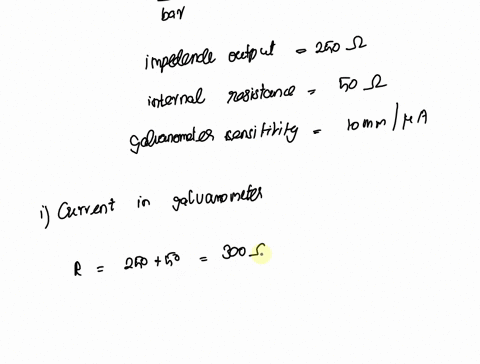 bar
impedende output = 250 Ω
internal resistance = 50 Ω
galvanometer sensitity = 10mm/μA
i) Current in galvanometer
R = 250 + 50 = 300 Ω